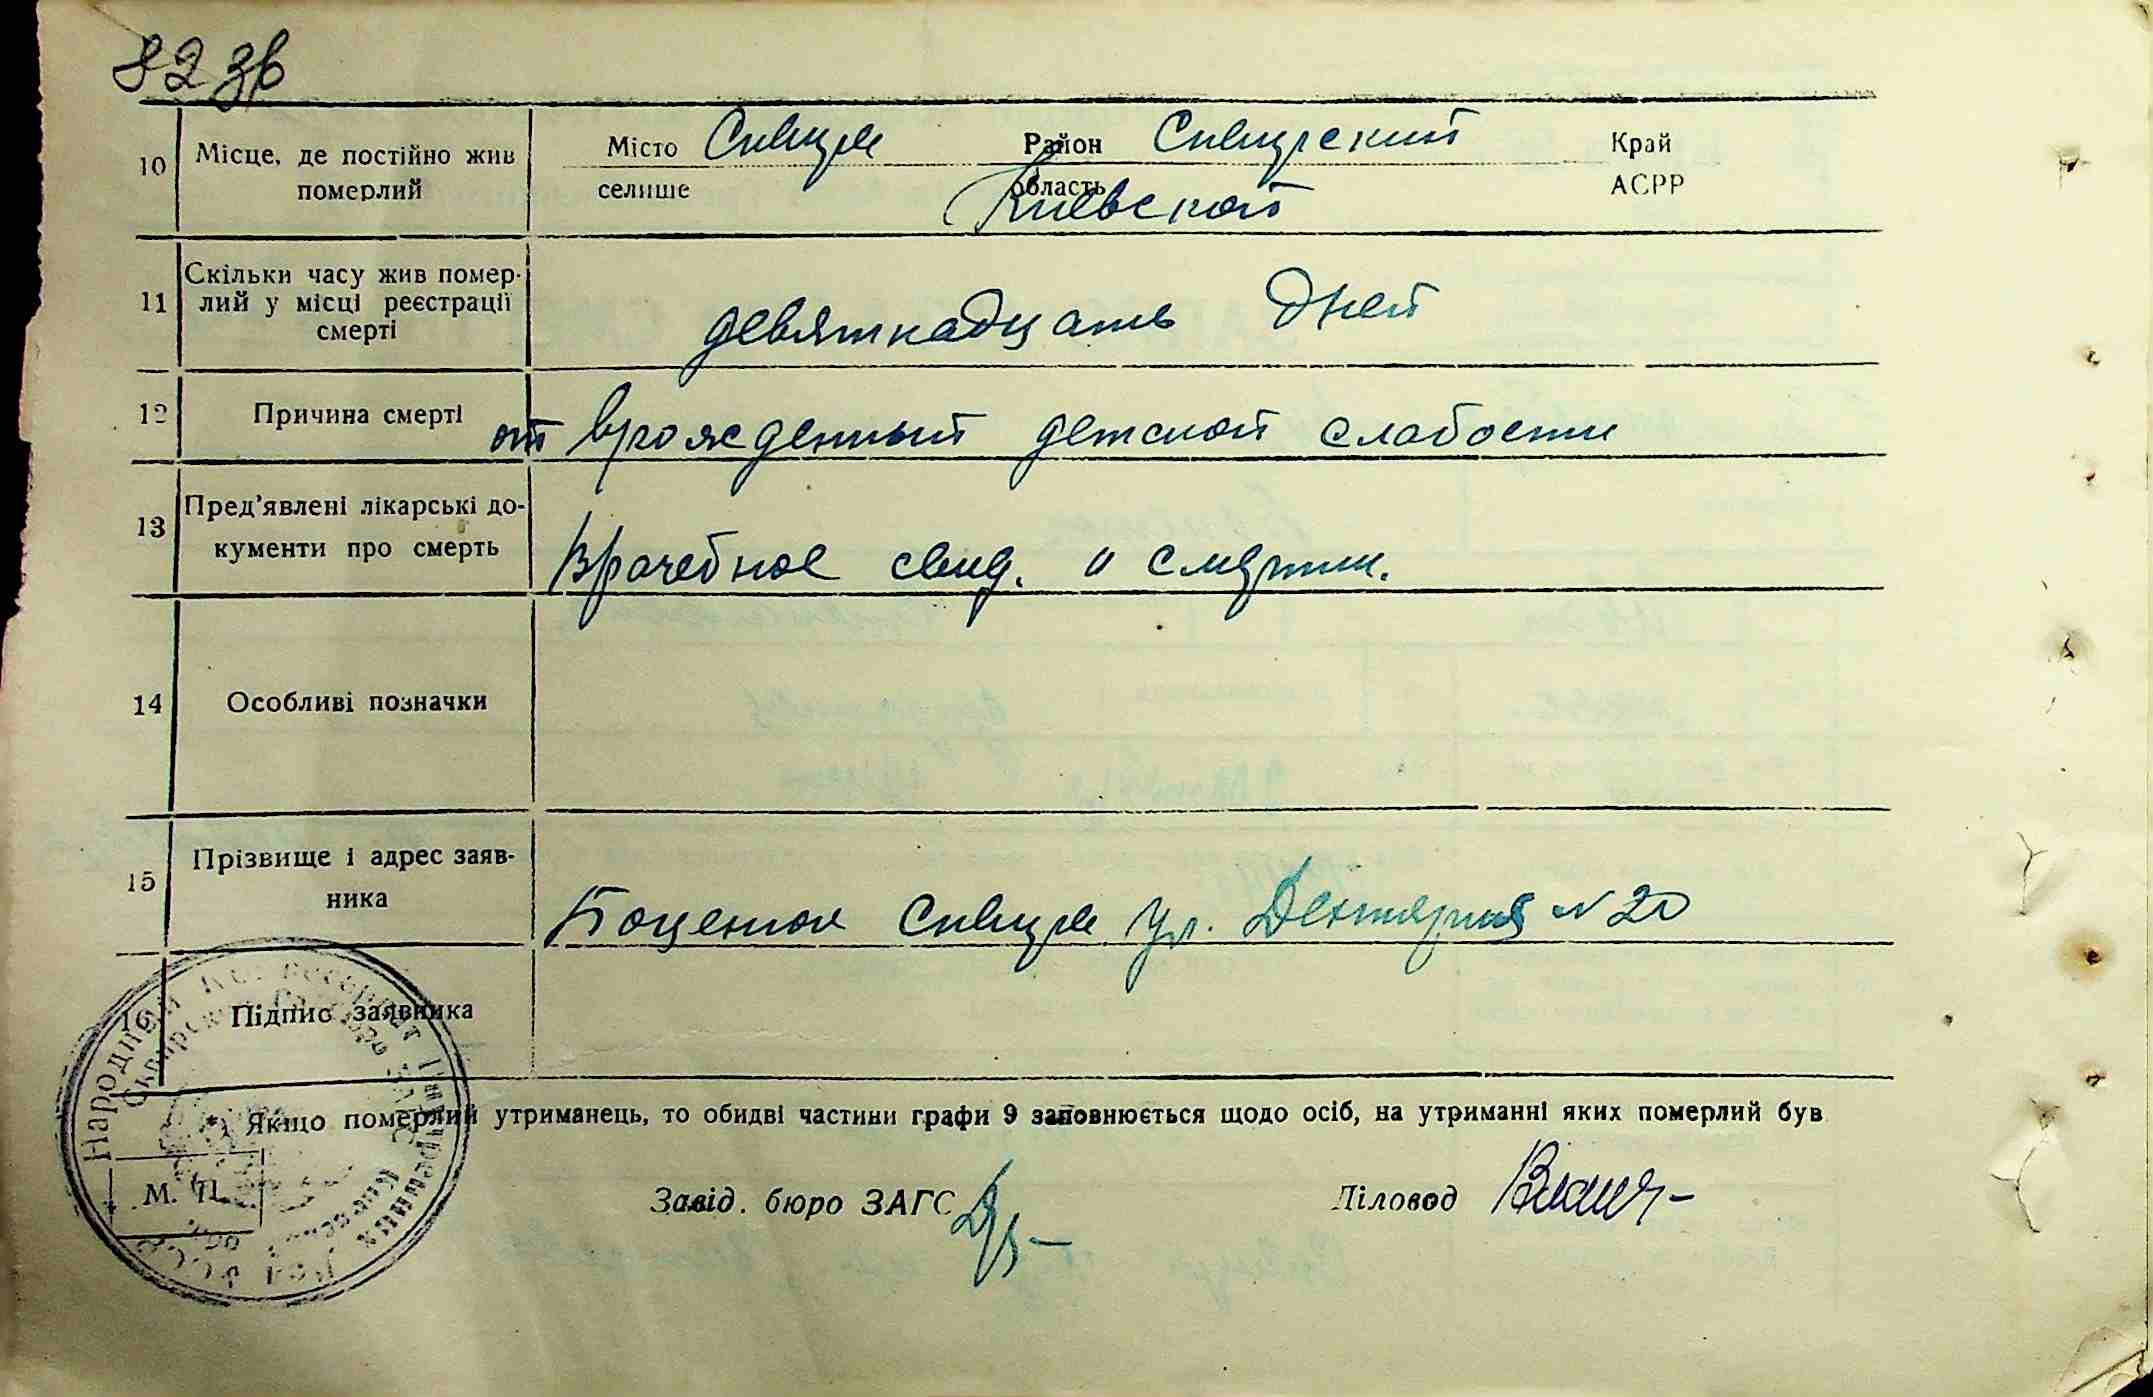 82 зв
10 Місце, де постійно жив Місто Сквира Район Сквирский Край
померлий селище область Киевской АСРР
11 Скільки часу жив помер-
лий у місці реєстрації девятнадцать дней
смерті
12 Причина смерті от врожденный детской слабости
13 Пред'явлені лікарські до-
кументи про смерть Врачебное свид. о смерти.
14 Особливі позначки
15 Прізвище і адрес заяв-
ника Сквира ул. № 20
16 Підпис заявника
*) Якщо померлий утриманець, то обидві частини графи 9 заповнюється щодо осіб, на утриманні яких померлий був
М. П.
Завід. бюро ЗАГС Діловод
Народний Комісаріат Внутрішніх